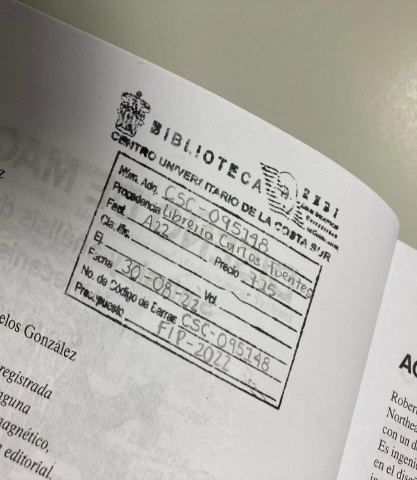 BIBLIOTECA
CENTRO UNIVERSITARIO DE LA COSTA SUR
Núm. Adq. CSC-095148
Procedencia Librería Carlos Fuentes
Fact. Precio 775
Clasific. A22
Ej. Vol.
Fecha 30-08-22
No. de Código de Barras CSC-095148
Presupuesto FIP-2022
elos González
registrada
nguna
magnético,
a editorial.
AC
Rober
Northea
con un d
Es ingeni
en el dise